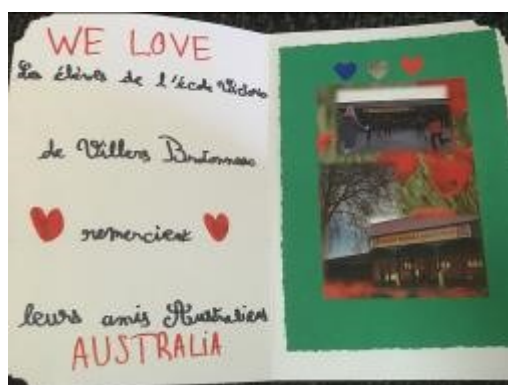 WE LOVE
Les élèves de l'école Victoria
de Villers Bretonneux
remercient
leurs amis Australiens
AUSTRALIA